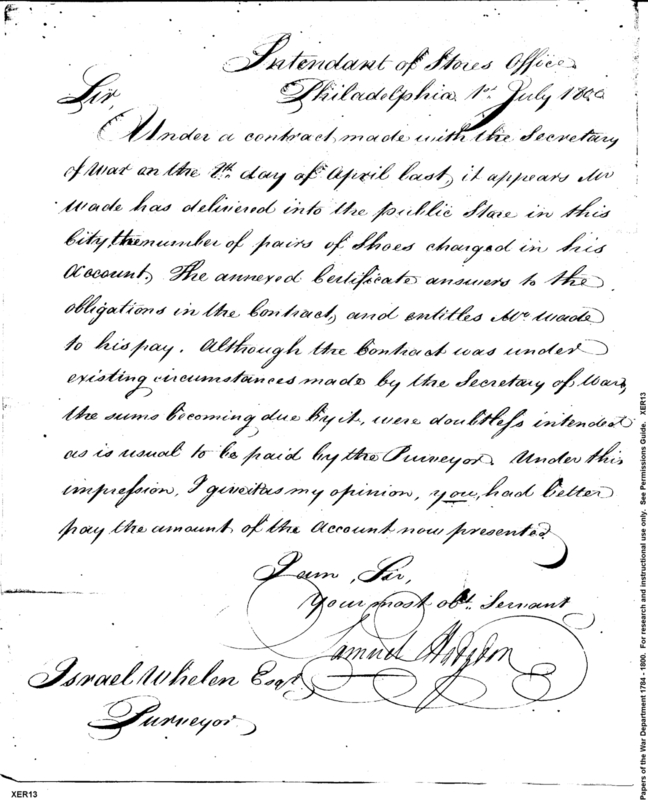 Intendant of Stores Office
Philadelphia 1st July 1800
Sir,
Under a contract made with the Secretary
of War on the day of April last, it appears Mr
Wade has delivered into the public Store in this
City, the number of pairs of Shoes charged in his
Account, The annexed Certificate answers to the
obligations in the Contract, and entitles Mr Wade
to his pay. Although the Contract was under
existing circumstances made by the Secretary of War,
the sums becoming due by it, were doubtless intended
as is usual to be paid by the Purveyor. Under this
impression, I give it as my opinion, you, had better
pay the amount of the Account now presented.
I am, Sir,
Your most obt. Servant
Samuel Hodgdon
Israel Whelen Esqr.
Purveyor
XER13
Papers of the War Department 1784 - 1800. For research and instructional use only. See Permissions Guide. XER13